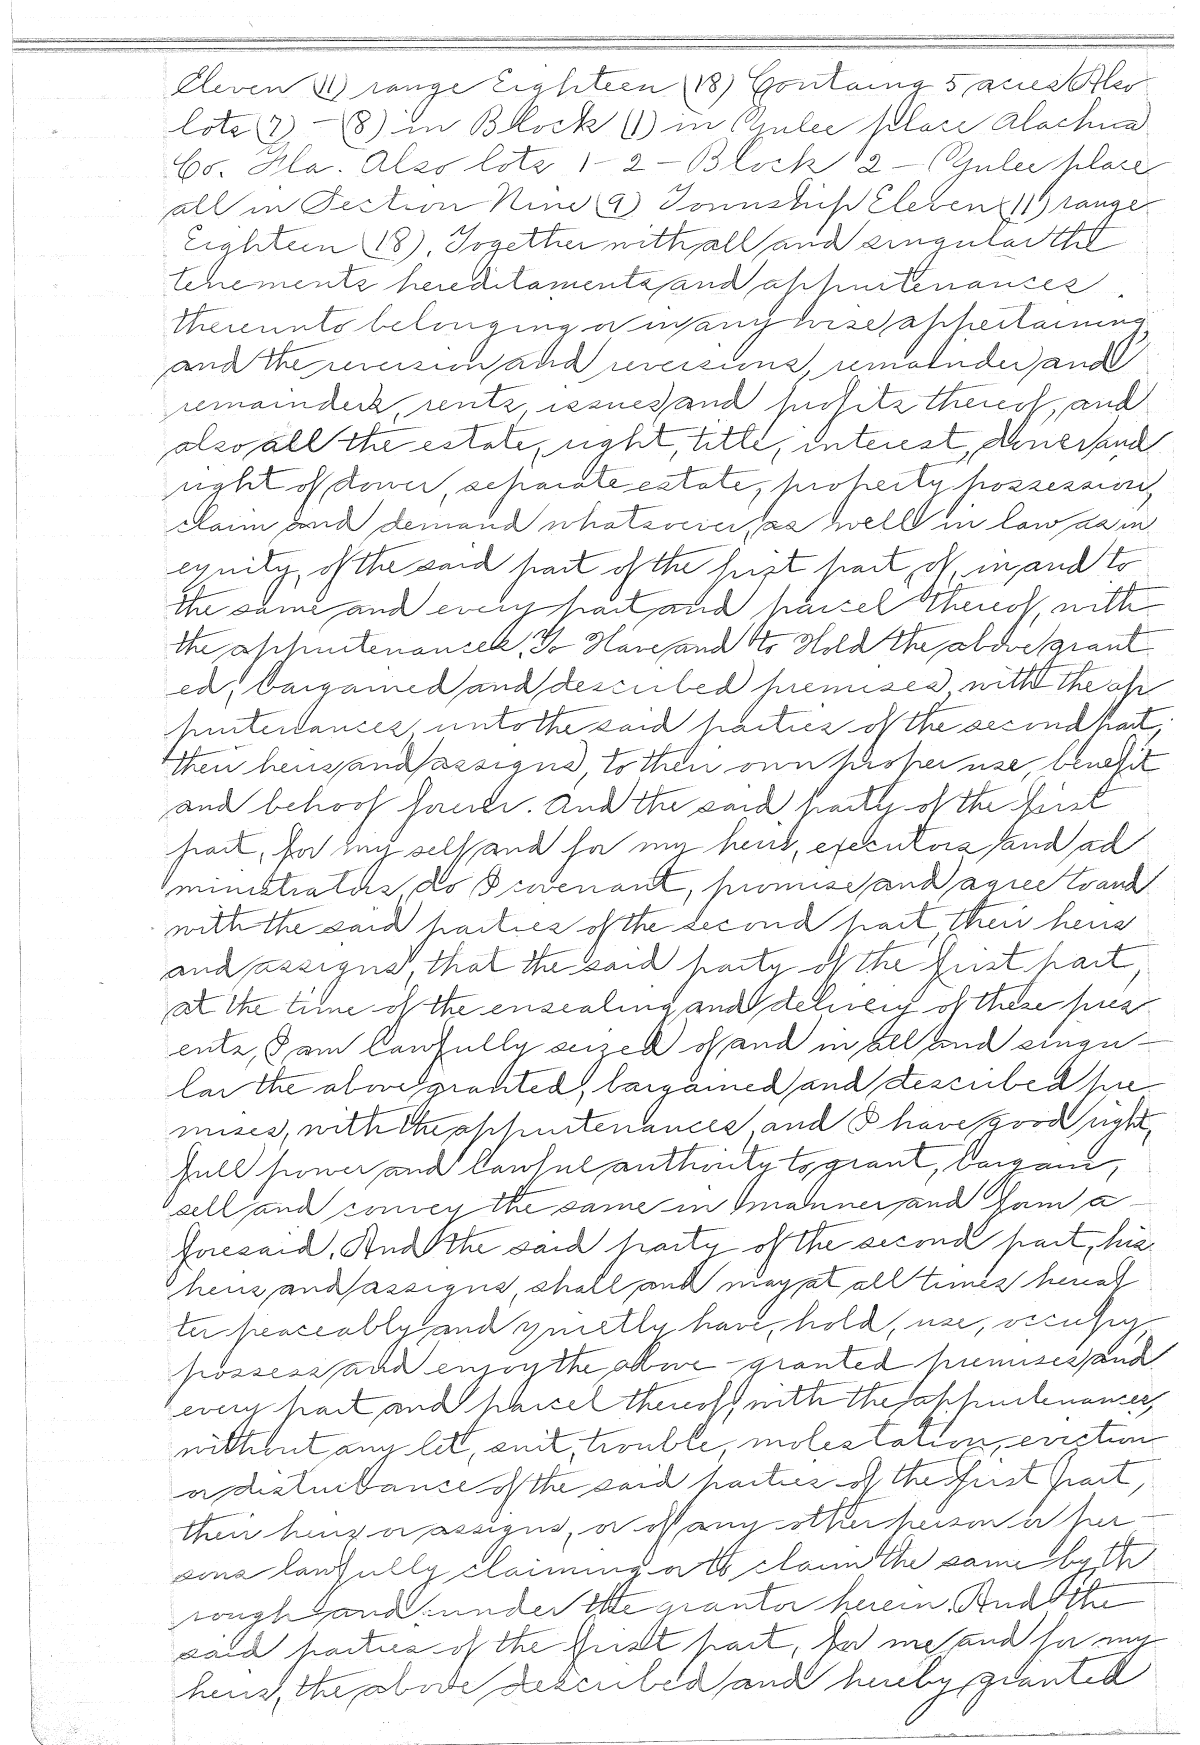 Eleven (11) range Eighteen (18) Containg 5 acres Also
lots (7) - (8) in Block (1) in Yulee place Alachua
Co. Fla. Also lots 1 - 2 - Block 2 - Yulee place
all in Section Nine (9) Township Eleven (11) range
Eighteen (18). Together with all and singular the
tenements hereditaments and appurtenances
thereunto belonging or in any wise appertaining,
and the reversion and reversions, remainder and
remainders, rents, issues and profits thereof, and
also all the estate, right, title, interest, dower and
right of dower, separate estate, property possession,
claim and demand whatsoever, as well in law as in
equity, of the said part of the first part, of, in and to
the same and every part and parcel thereof, with
the appurtenances. To Have and to Hold the above grant
ed, bargained and described premises, with the ap
purtenances, unto the said parties of the second part,
their heirs and assigns, to their own proper use, benefit
and behoof forever. And the said party of the first
part, for my self and for my heirs, executors and ad
ministrators, do I covenant, promise and agree to and
with the said parties of the second part, their heirs
and assigns, that the said party of the first part,
at the time of the ensealing and delivery of these pres
ents, I am lawfully seized of and in all and singu-
lar the above granted, bargained and described pre
mises, with the appurtenances, and I have good right,
full power and lawful authority to grant, bargain,
sell and convey the same in manner and form a-
foresaid. And the said party of the second part, his
heirs and assigns, shall and may at all times hereaf
ter peaceably and quietly have, hold, use, occupy,
possess and enjoy the above-granted premises and
every part and parcel thereof, with the appurtenances,
without any let, suit, trouble, molestation, eviction
or disturbance of the said parties of the first part,
their heirs or assigns, or of any other person or per-
sons lawfully claiming or to claim the same by th
rough and under the grantor herein. And the
said parties of the first part, for me and for my
heirs, the above described and hereby granted